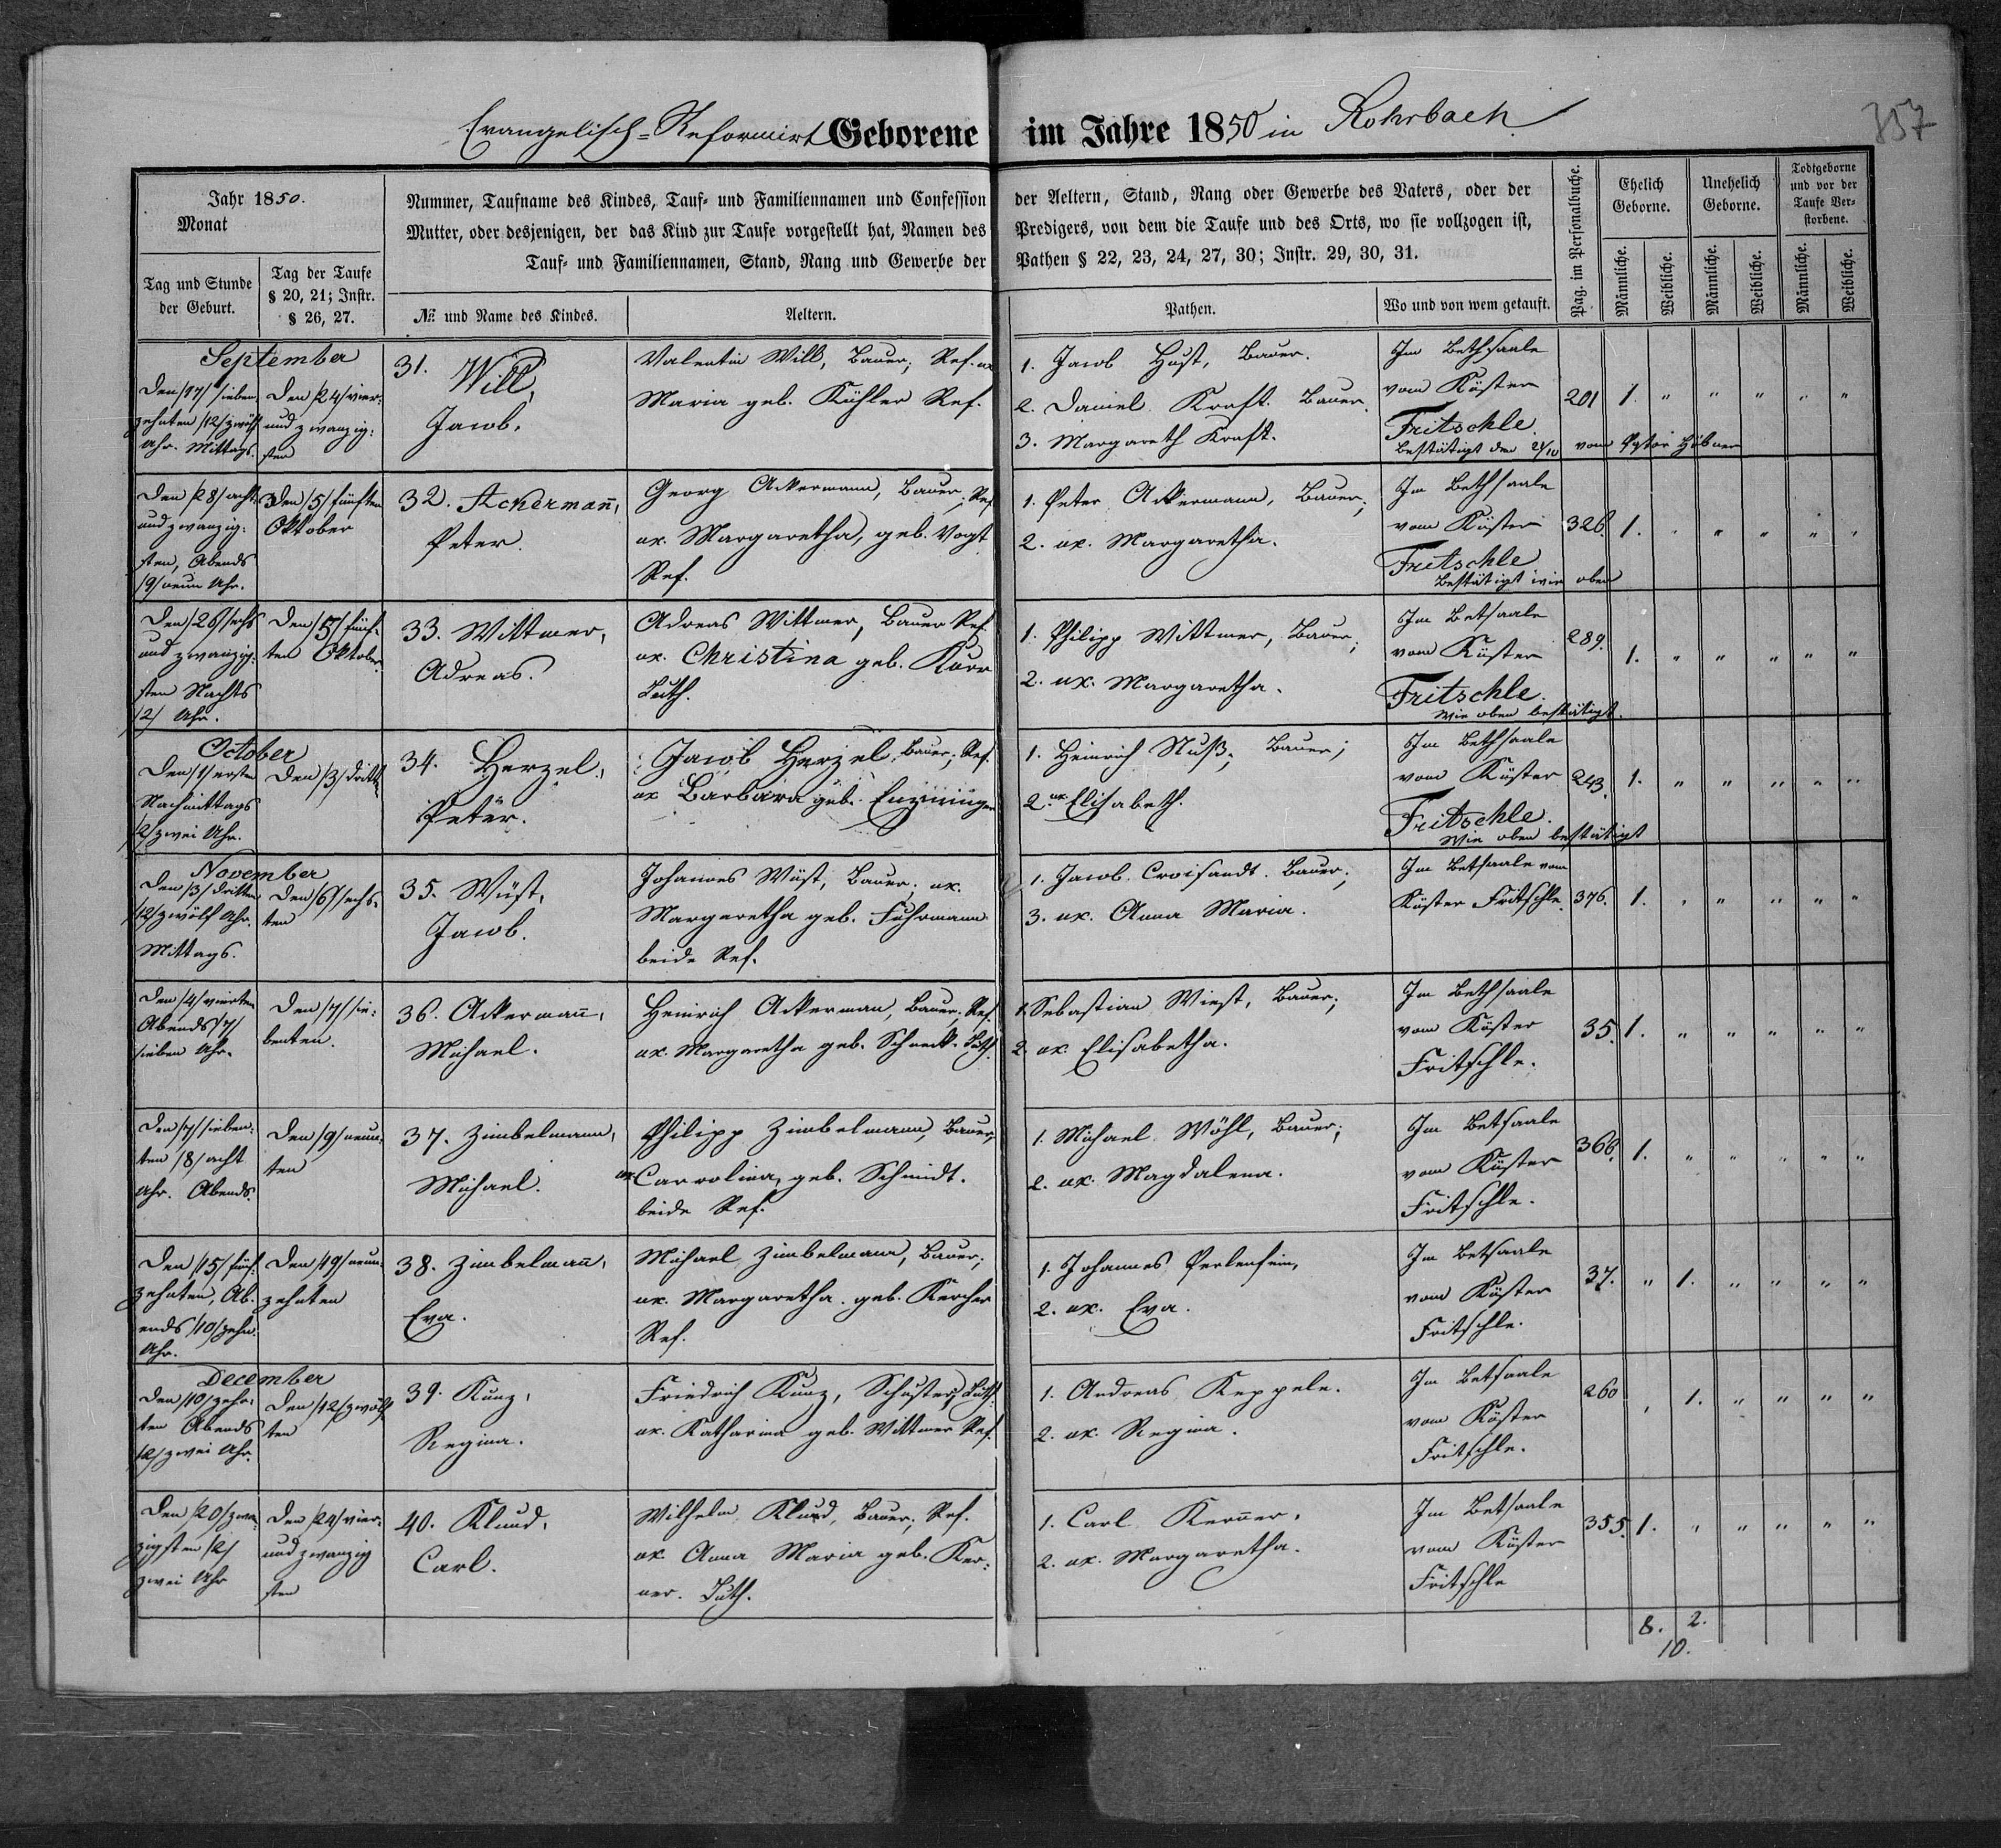 Evangelisch=Reformirt Geborene im Jahre 1850 in Rohrbach
357
Jahr 1850.
Monat
Tag und Stunde
der Geburt.
Tag der Taufe
§ 20, 21; Instr.
§ 26, 27.
Nummer, Taufname des Kindes, Tauf= und Familiennamen und Confession
Mutter, oder desjenigen, der das Kind zur Taufe vorgestellt hat, Namen des
Tauf= und Familiennamen, Stand, Rang und Gewerbe der
№ und Name des Kindes.
Aeltern.
der Aeltern, Stand, Rang oder Gewerbe des Vaters, oder der
Predigers, von dem die Taufe und des Orts, wo sie vollzogen ist,
Pathen § 22, 23, 24, 27, 30; Instr. 29, 30, 31.
Pathen.
Wo und von wem getauft.
Pag. im Personalbuche.
Ehelich
Geborne.
Unehelich
Geborne.
Todtgeborne
und vor der
Taufe Ver=
storbene.
Männliche.
Weibliche.
Männliche.
Weibliche.
Männliche.
Weibliche.
September
Den /17/ sieben
zehnten /12/ zwölf
Uhr. Mittags.
Den /24/ vier=
und zwanzig=
sten
31. Will,
Jacob.
Valentin Will, Bauer; Ref. ux
Maria geb. Kühler Ref.
1. Jacob Hust, Bauer.
2. Daniel Kraft. Bauer.
3. Margareth Kraft.
Im Bethsaale
vom Küster
Fritschle.
Bestätigt den 21/10 vom Pstor Hübner
201 1. " " " " "
Den /28/ acht=
und zwanzig=
sten, Abends
/9/ neun Uhr.
Den /5/ fünften
Oktober
32. Ackermañ,
Peter.
Georg Ackermann, Bauer; Ref
ux. Margaretha, geb. Vogt
Ref.
1. Peter Ackermann, Bauer;
2. ux. Margaretha.
Im Bethsaale
vom Küster
Fritschle
Bestätigt wie oben
326. 1. " " " " "
Den /26/ sechs
und zwanzig=
sten Nachts
/2/ Uhr.
Den /5/ fünf=
ten Oktober.
33. Wittmer,
Adreas.
Adreas Wittmer, Bauer Ref.
ux. Christina geb. Kurr
Luth.
1. Philipp Wittmer, Bauer;
2. ux. Margaretha.
Im Betsaale
vom Küster
Fritschle.
Wie oben bestätigt.
289. 1. " " " " "
October
Den /1/ ersten
Nachmittags
/2/ zwei Uhr.
Den /3/ dritt
34. Herzel,
Peter.
Jacob Herzel, Bauer; Ref.
ux Barbara geb. Enzminger
1. Heinrich Nuß; Bauer;
2. ux Elisabeth.
Im Bethsaale
vom Küster
Fritschle.
Wie oben bestätigt
243. 1. " " " " "
November
Den /3/ dritten
/12/ zwölf Uhr.
Mittags.
Den /6/ sechs=
ten
35. Wüst,
Jacob.
Johannes Wüst, Bauer; ux.
Margaretha geb. Fuhrmann
beide Ref.
1. Jacob Croisandt. Bauer;
3. ux. Anna Maria.
Im Betsaale vom
Küster Fritschle.
376. 1. " " " " "
Den /4/ vierten
Abends /7/
sieben Uhr.
Den /7/ sie=
benten.
36. Ackermañ,
Michael.
Heinrich Ackerman, Bauer; Ref.
ux. Margaretha geb. Schneck. Luth.
1. Sebastian Wiest, Bauer;
2. ux. Elisabetha.
Im Bethsaale
vom Küster
Fritschle.
35. 1. " " " " "
Den /7/ sieben=
ten /8/ acht
Uhr. Abends.
Den /9/ neun=
ten
37. Zimbelmann,
Michael.
Philipp Zimbelmann, Bauer;
ux. Carrolina, geb. Schmidt.
beide Ref.
1. Michael Wöhl, Bauer;
2. ux. Magdalena.
Im Betsaale
vom Küster
Fritschle.
366. 1. " " " " "
Den /15/ fünf=
zehnten, Ab=
ends /10/ zehn
Uhr.
Den /19/ neun=
zehnten
38. Zimbelmañ,
Eva.
Michael Zimbelmann, Bauer;
ux. Margaretha. geb. Kercher
Ref.
1. Johannes Perlenfein,
2. ux. Eva.
Im Betsaale
vom Küster
Fritschle.
37. " 1. " " " "
December
Den /10/ zehn=
ten Abends
/2/ zwei Uhr.
Den /12/ zwölf
ten
39. Kunz,
Regina.
Friedrich Kunz, Schuster; Luth.
ux. Katharina geb. Wittmer Ref.
1. Andreas Keppele.
2. ux. Regina.
Im Betsaale
vom Küster
Fritschle.
260 " 1. " " " "
Den /20/ zwan
zigsten /2/
zwei Uhr
Den /24/ vier=
und zwanzig
sten
40. Klund,
Carl.
Wilhelm Klund, Bauer; Ref.
ux Anna Maria geb. Ker=
ner. Luth.
1. Carl Kerner.
2. ux. Margaretha.
Im Betsaale
vom Küster
Fritschle
355. 1. " " " " "
8. 2.
10.